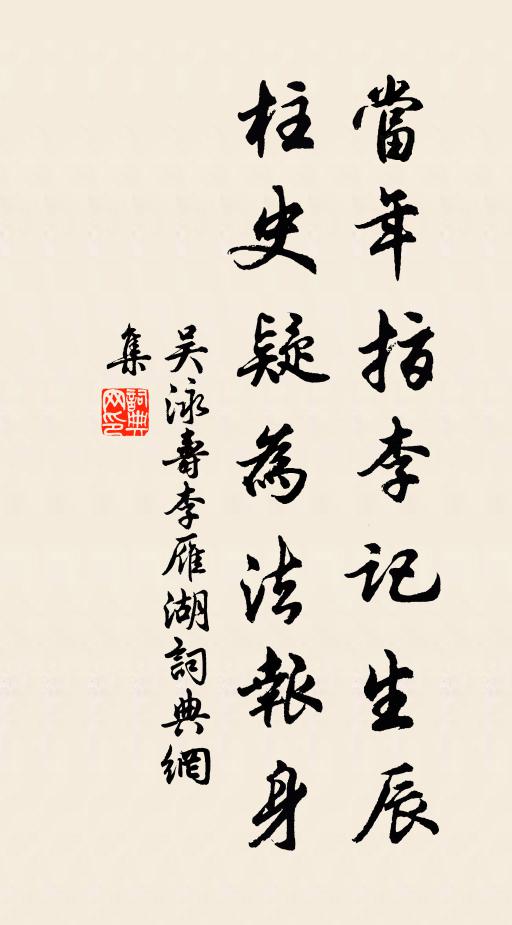 當年指李記生辰
柱史疑為法報身
吴泳壽李雁湖詞典網
集
詞典网印